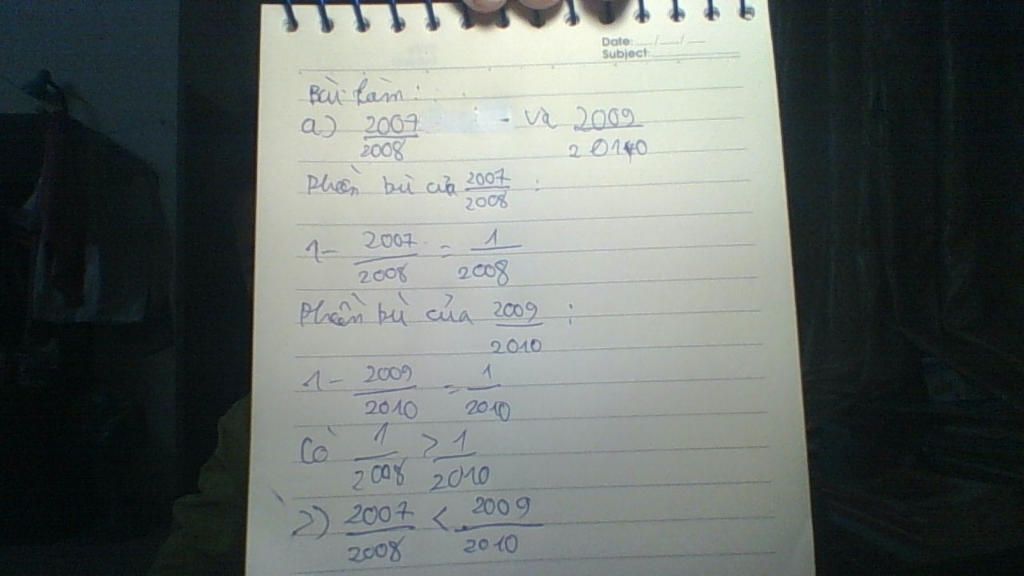 Date: __/__/__
Subject:
Bài làm:
a) 2007/2008 - và 2009/2010
Phần bù của 2007/2008 :
1 - 2007/2008 = 1/2008
Phần bù của 2009/2010 :
1 - 2009/2010 = 1/2010
Có 1/2008 > 1/2010
=) 2007/2008 < 2009/2010